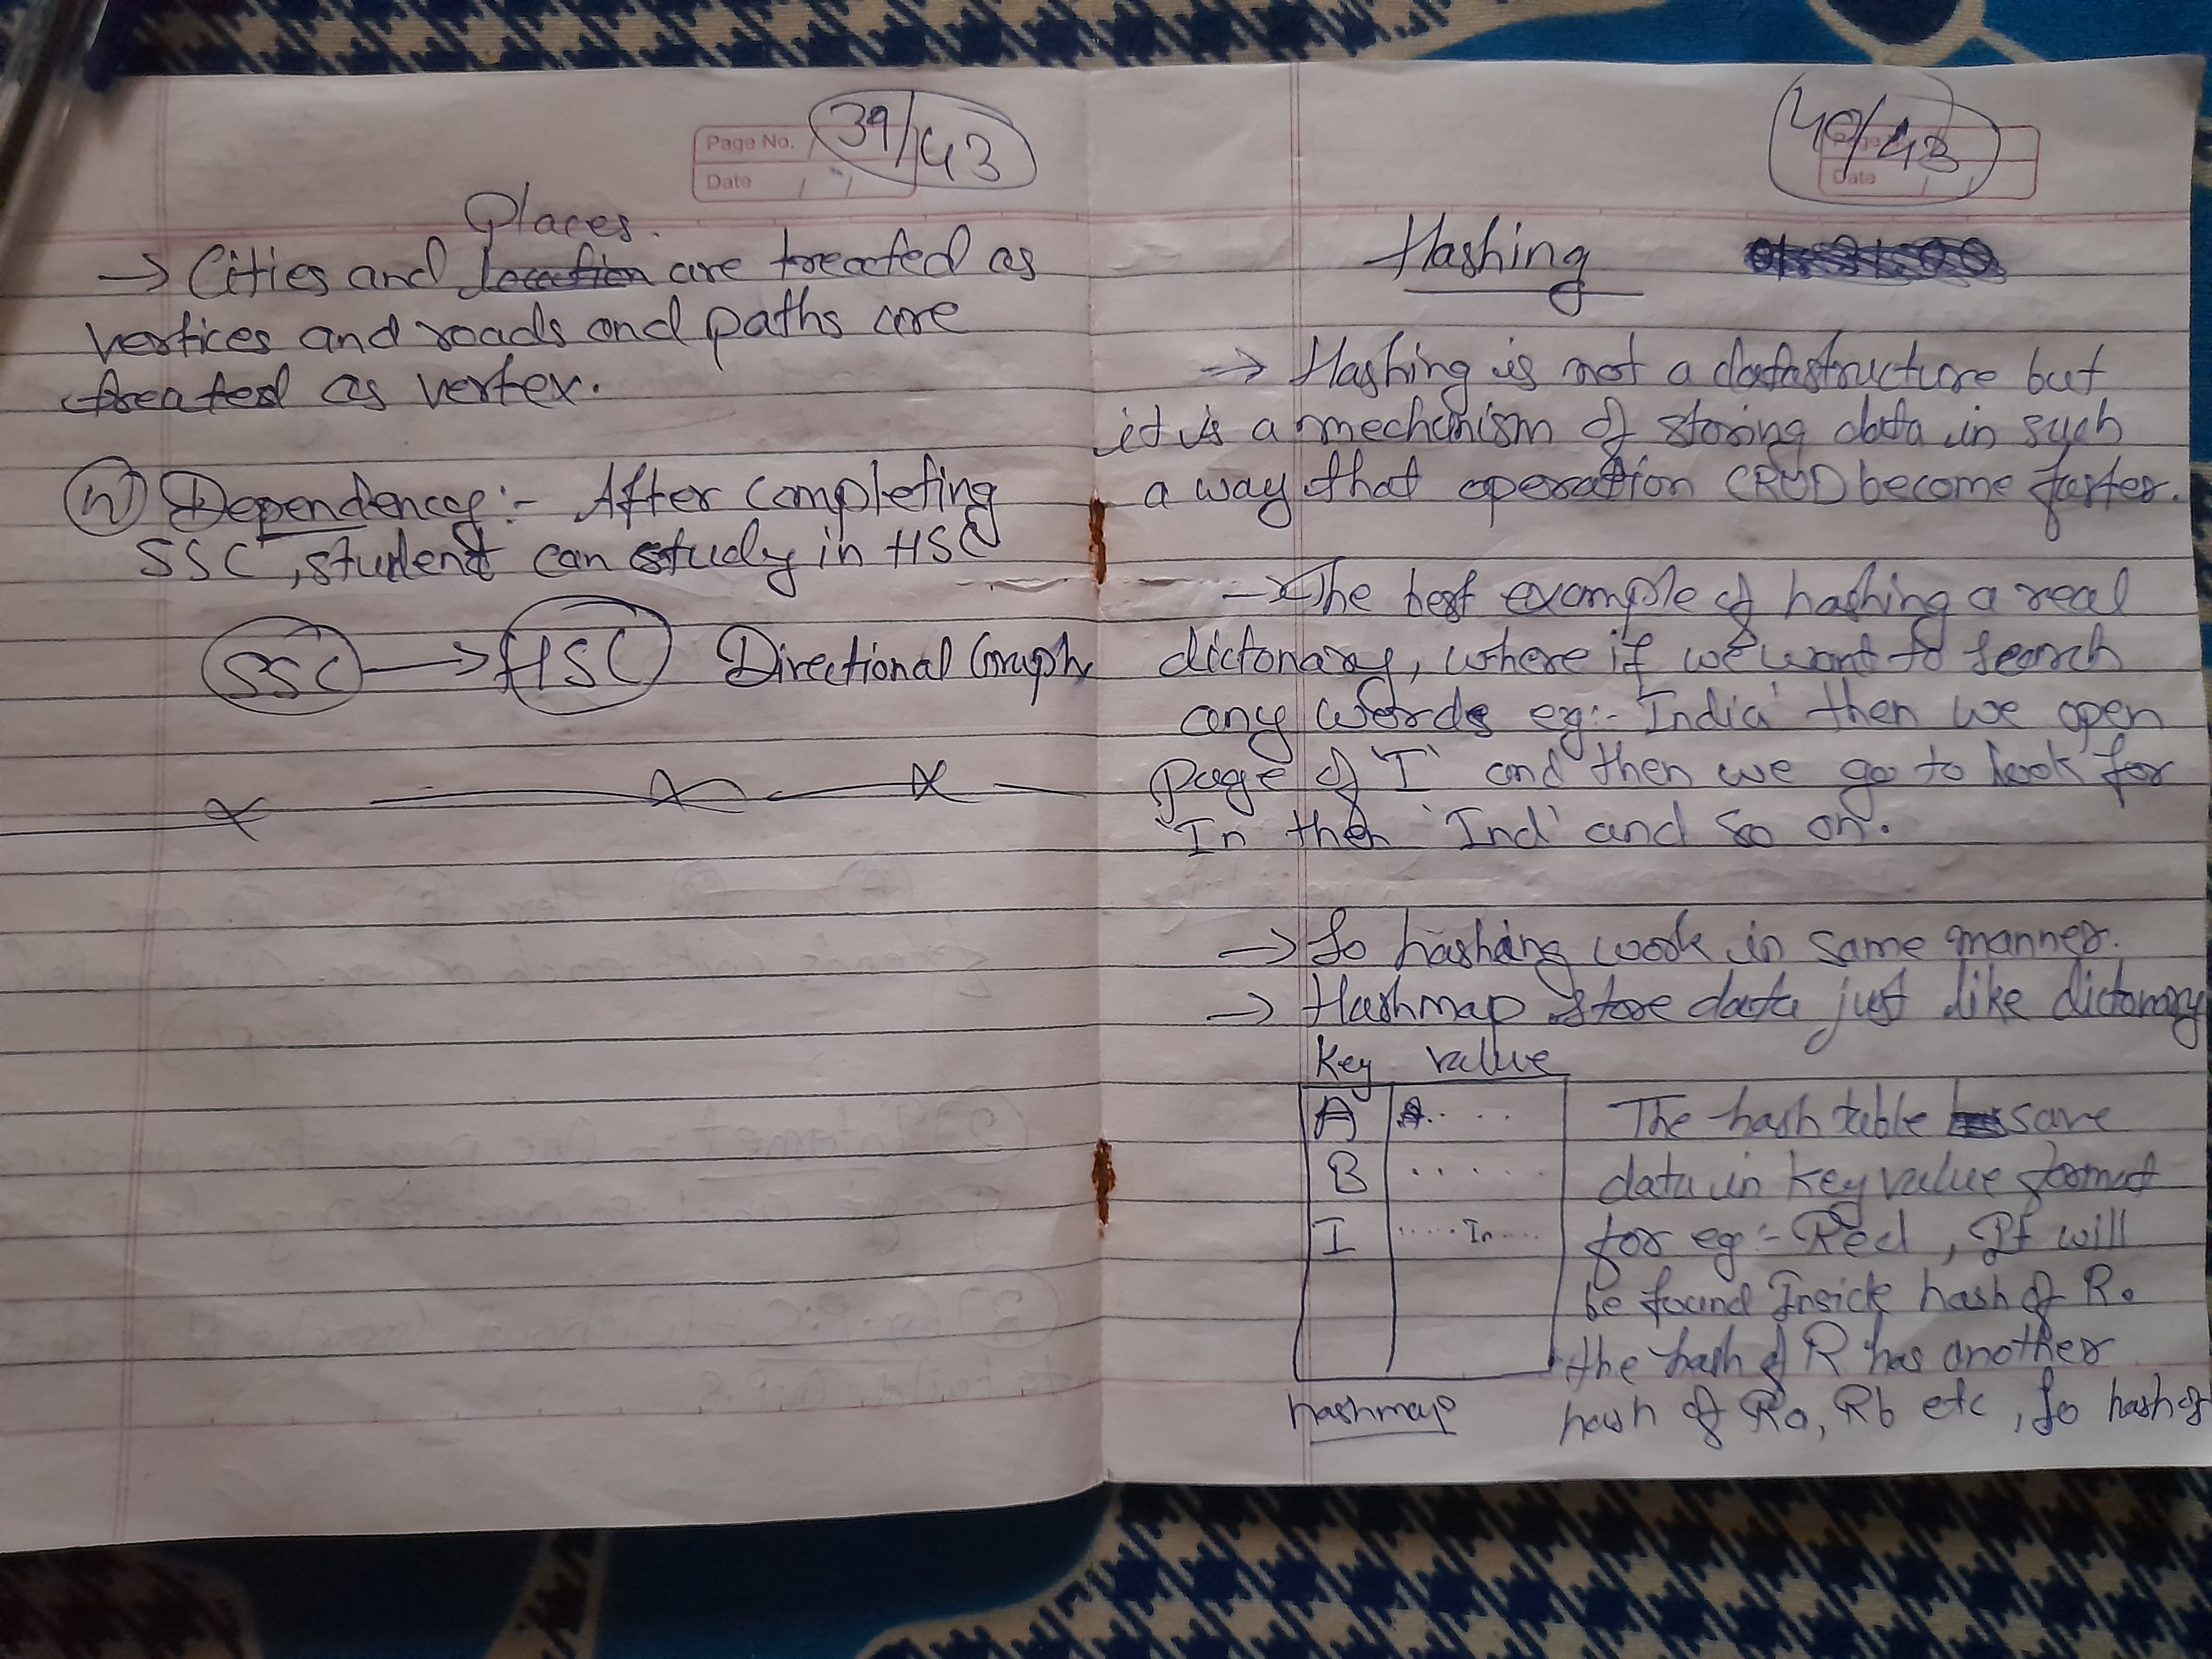 Page No.
Date / /
39/43
Places.
→ Cities and location are treated as
vertices and roads and paths are
treated as vertex.
4) Dependency:- After completing
SSC, student can study in HSC
SSC → HSC Directional Graph
40/43
Date / /
Hashing
→ Hashing is not a datastructure but
it is a mechanism of storing data in such
a way that operation CRUD become faster.
→ The best example of hashing a real
dictonary, where if we want to search
any words eg:- 'India' then we open
page of 'I' and then we go to look for
'In then 'Ind' and so on.
→ So hashing work in same manner.
→ Hashmap store data just like dictonary
Key value
A A.. ..
B .. ...
I ..... In ...
hashmap
The hash table save
data in key value format
for eg:- Red, It will
be found Inside hash of R.
the hash of R has another
hash of Ra, Rb etc, So hash of